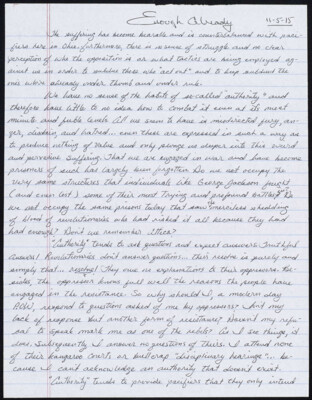 Enough Already
11-5-15
The suffering has become bearable and is counterbalanced with pacifiers here in Ohio. Furthermore, there is a sense of struggle and no clear
perception of who the opposition is or what tactics are being employed against us in order to
"act out" and to keep subdued the
mice who are already under thumb and under sub.
We have no sense of the habits of so-called "authority" and
therefore have little to no idea how to combat it even at its most
minute and futile levels. All we seem to have is misdirected fury, anger, sadism, and hatred... even these are expressed in such a way as
to produce nothing of value and only plunge us deeper into this overall
and perverse suffering. That we are engaged in war and have become
prisoners of such has largely been forgotten. Do we not occupy the
very same structures that individuals like George Jackson fought
(and even lost) some of their most trying and profound battles? Do
we not occupy the same prisons today that now ourselves holding
of blood of revolutionaries who had risked it all because they had
had enough? Don't we remember Attica?
"Authority" tends to ask questions and expect answers. Truthful
answers! Revolutionaries don't answer questions... their resolve is purely and
simply that... resolve! They owe no explanations to their oppressors. Besides, the oppressor knows full well the reasons the people have
engaged in the resistance. So why should I, a modern day
rebel, respond to questions asked of me by oppressors? Isn't my
lack of response but another form of resistance? Doesn't my refusal to speak mark me as one of the rebels? As I see things, it
does. Subsequently I answer no questions of theirs. I attend none
of their kangaroo courts or bullcrap "disciplinary hearings"... because I can't acknowledge an authority that doesn't exist.
"Authority" tends to provide pacifiers that they only intend